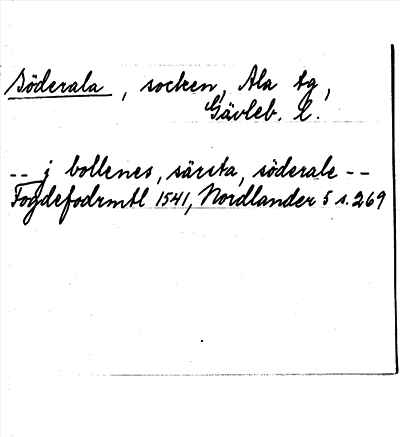 Söderala, socken, Ala tg,
Gävleb. l.
-- j bollenes, särsta, söderale --
Fogdefodrmtl 1541, Nordlander 5 s. 269